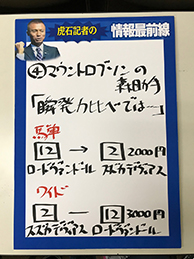 虎石記者の 情報最前線
④マウントロブソンの
森助手
「瞬発力比べでは…」
馬単
12 → 2 2000円
ロードヴァンドール スズカデヴィアス
ワイド
2 — 12 3000円
スズカデヴィアス ロードヴァンドール